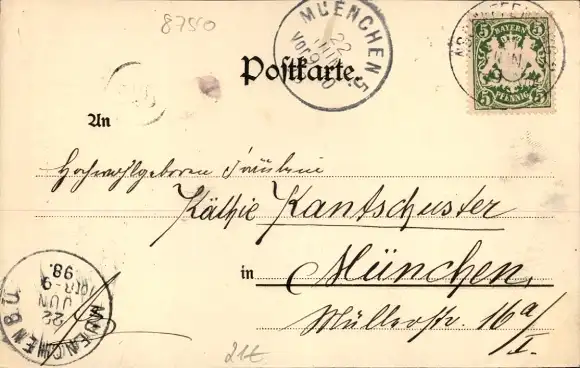 8750
MUENCHEN 5.
22
JUN
Vor 9-10
BAYERN
5 5
5 5
PFENNIG
Postkarte.
An
Hochwohlgeboren Fräulein
Käthie Kantschuster
in München,
Müllerstr. 16 a/I.
MUENCHEN B.Ü.
22
JUN
98.